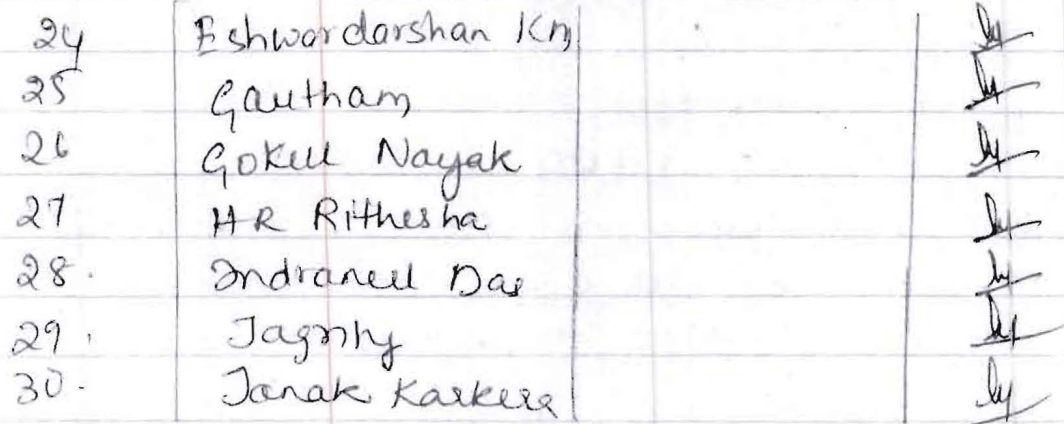 24 Eshwardarshan Km
25 Gautham
26 Gokul Nayak
27 HR Rithesha
28. Indraneel Das
29. Jagrity
30. Janak Karkera